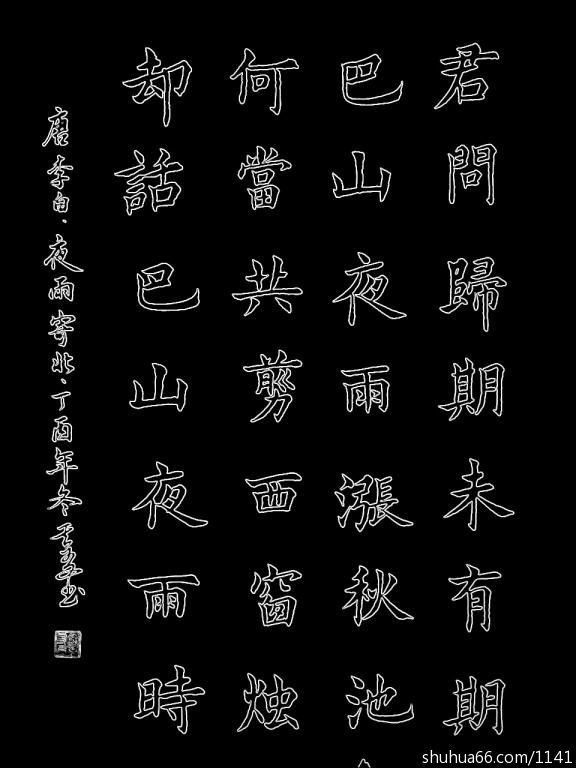 君問歸期未有期
巴山夜雨漲秋池
何當共剪西窗烛
却話巴山夜雨時
唐李白、夜雨寄北、丁酉年冬
shuhua66.com/1141